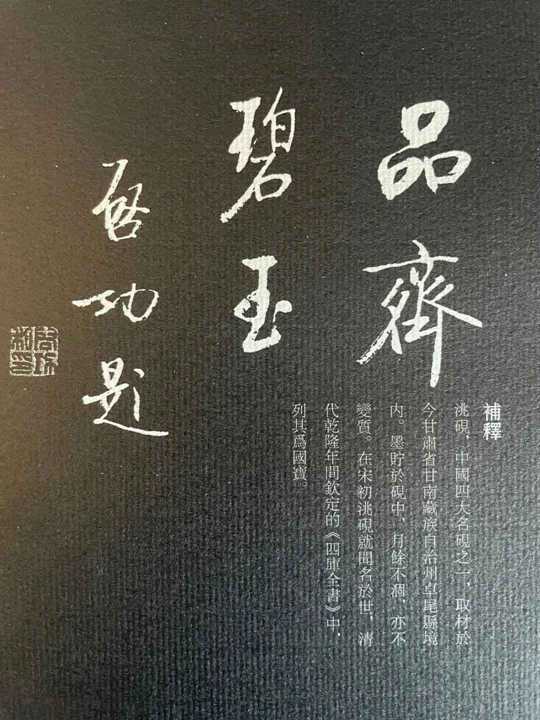 品齊
碧玉
啓功題
補釋
洮硯，中國四大名硯之一，取材於
今甘肅省甘南藏族自治州卓尾縣境
内。墨貯於硯中，月餘不涸，亦不
變質。在宋初洮硯就聞名於世，清
代乾隆年間欽定的《四庫全書》中，
列其爲國寶。